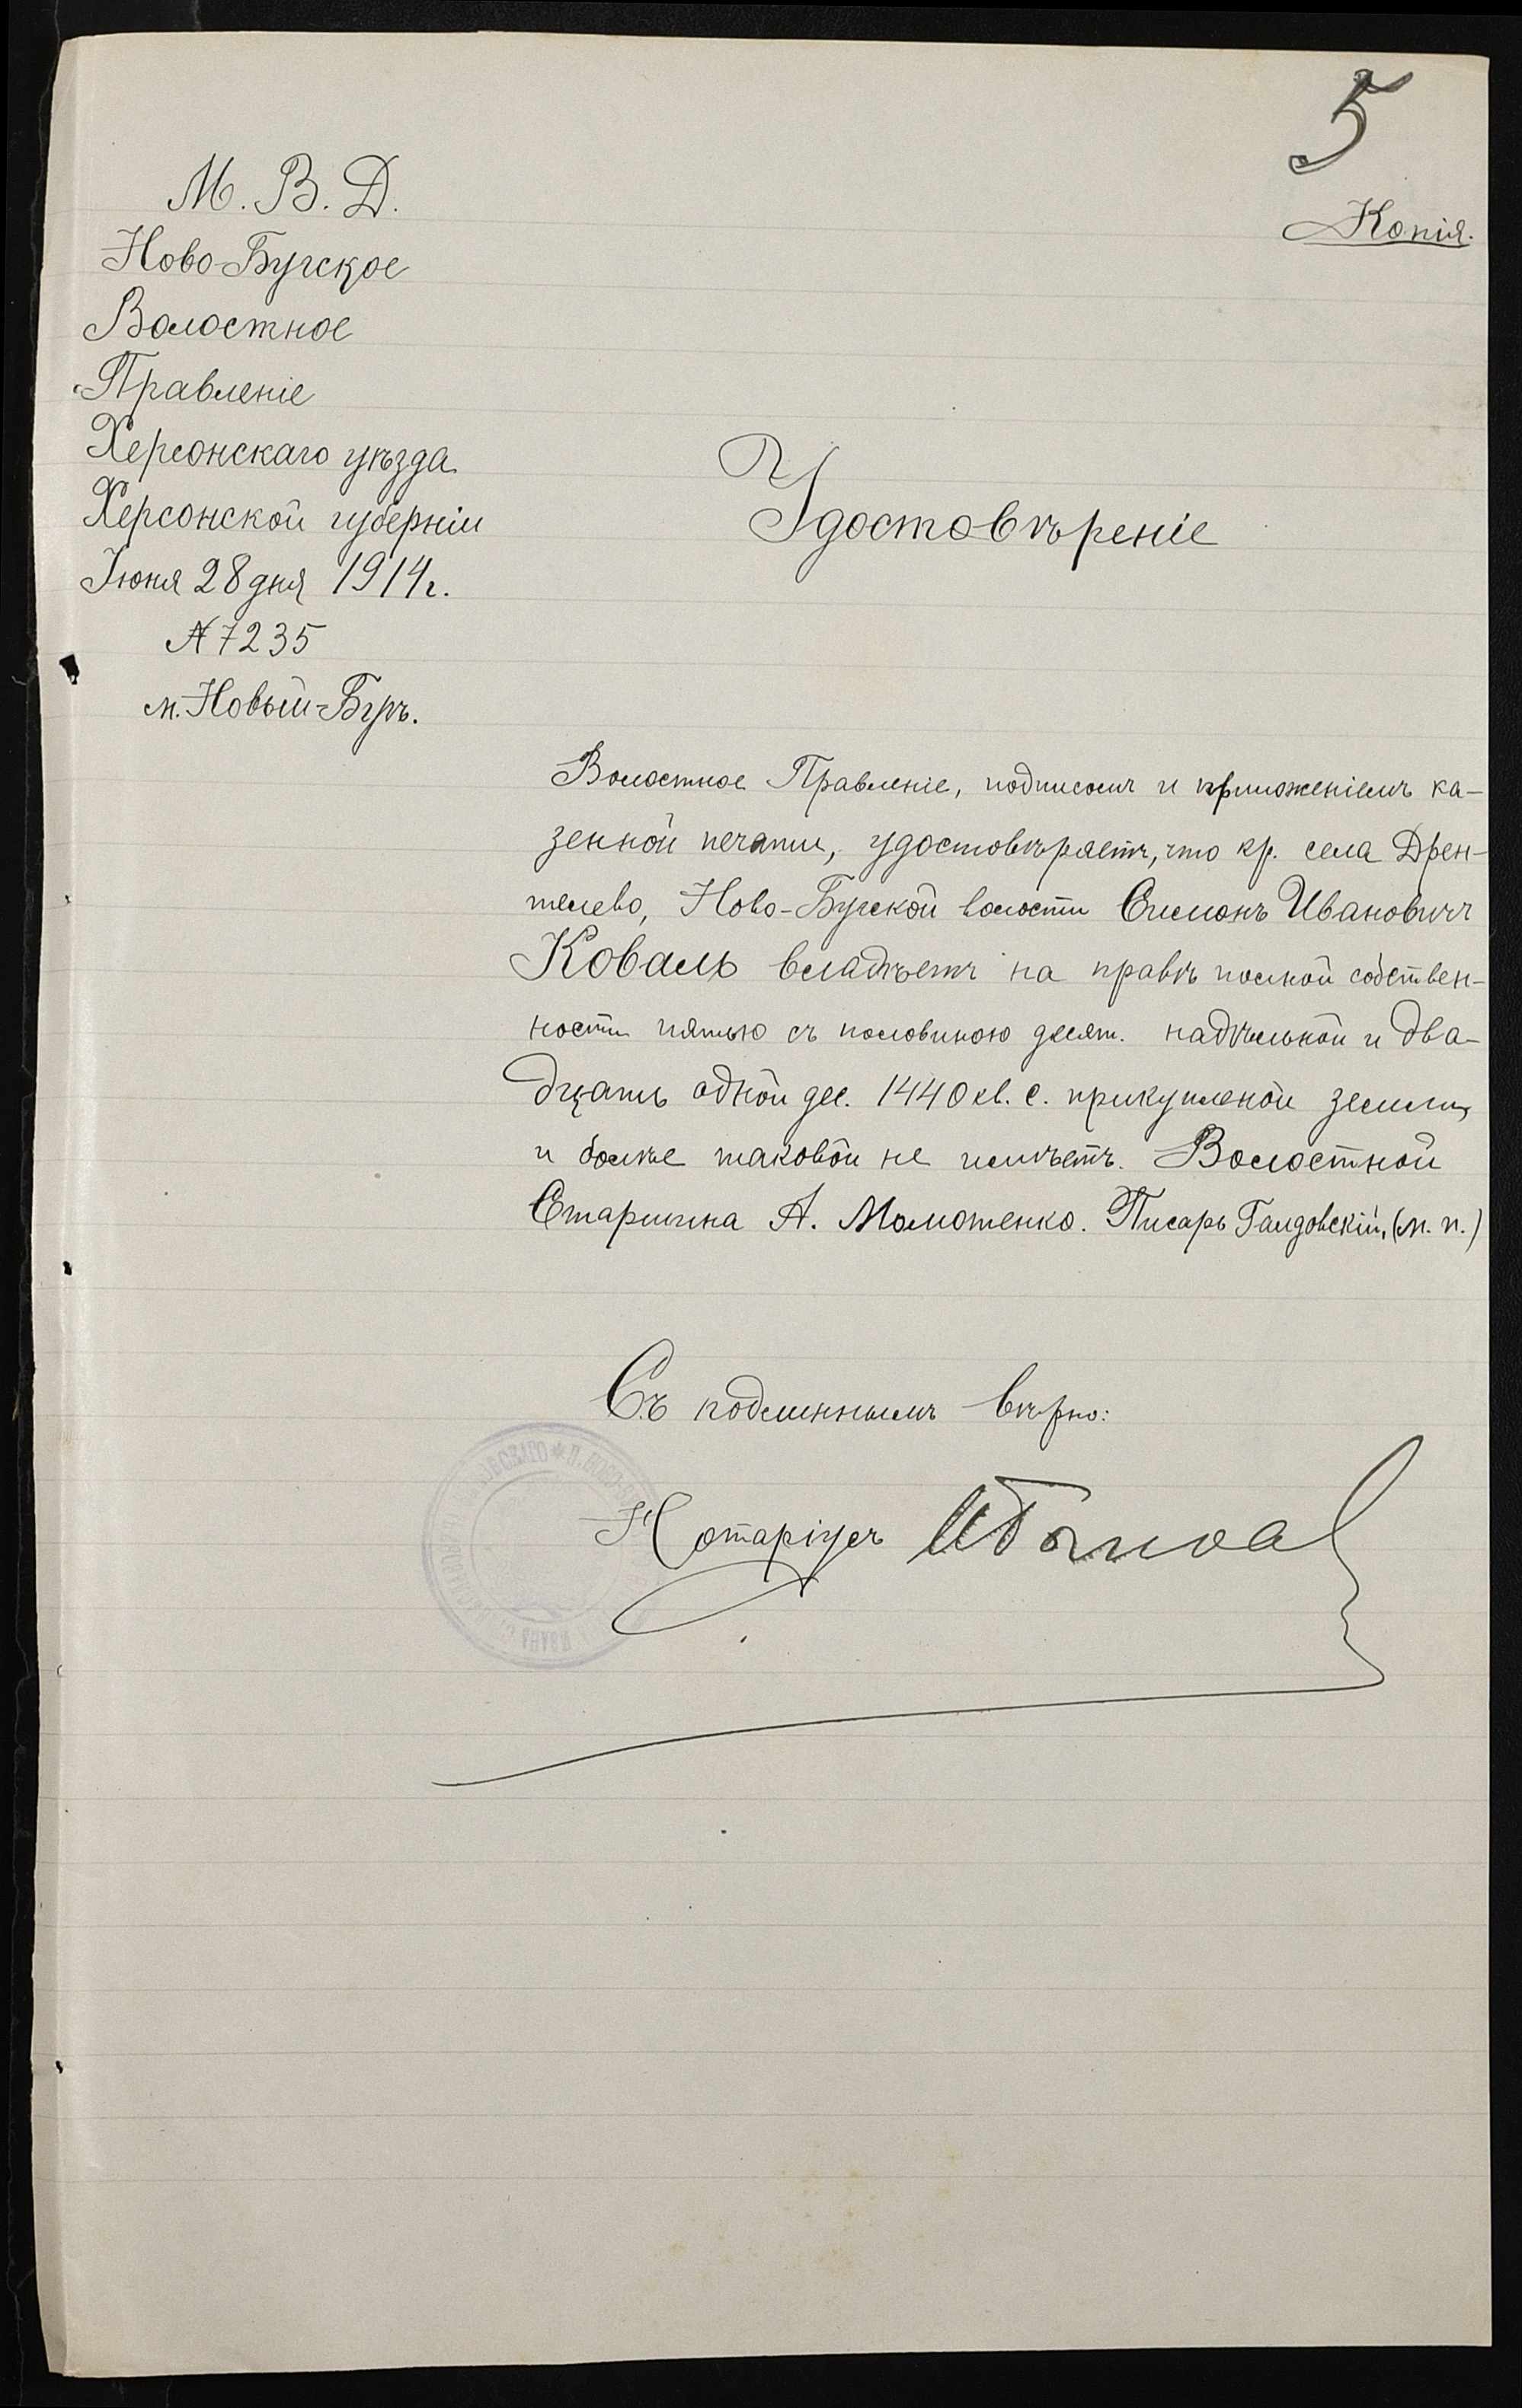 5
Копія.
М. В. Д.
Ново-Бугское
Волостное
Правленіе
Херсонскаго уѣзда
Херсонской губерніи
Іюня 28 дня 1914 г.
№ 7235
м. Новый-Бугъ.
Удостовѣреніе
Волостное Правленіе, подписомъ и приложеніемъ ка-
зенной печати, удостовѣряетъ, что кр. села Дрен-
телево, Ново-Бугской волости Симонъ Ивановичъ
Коваль владѣетъ на правѣ полной собствен-
ности пятью съ половиною десят. надѣльной и два-
дцать одной дес. 1440 кв. с. прикупленой земли,
и болѣе таковой не имѣетъ. Волостной
Старшина А. Момотенко. Писарь Галдовскій, (м. п.)
Съ подлиннымъ вѣрно:
Нотаріусъ